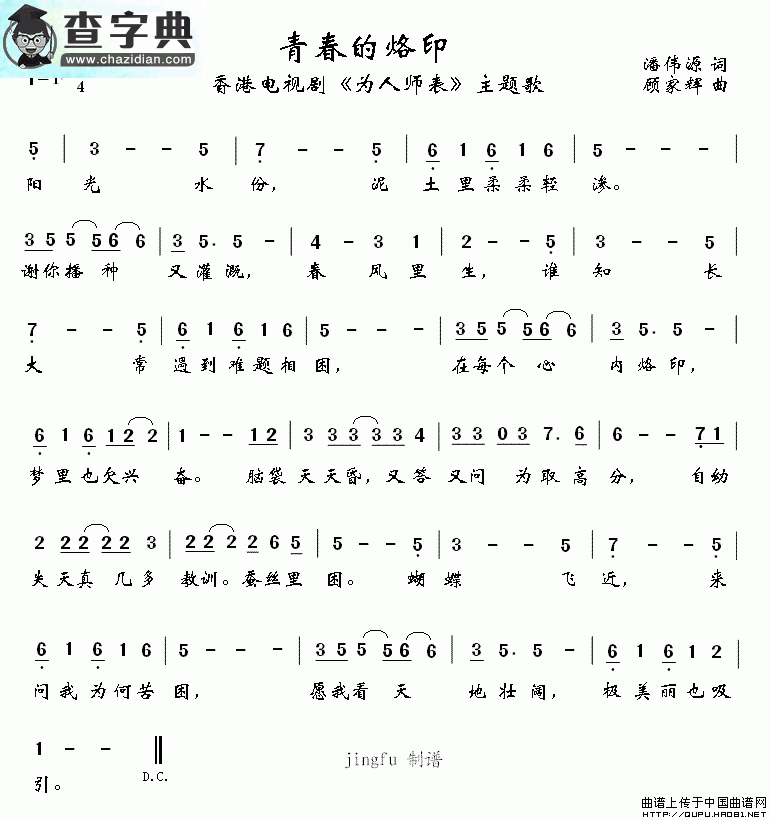 查字典
www.chazidian.com
青春的烙印
4
香港电视剧《为人师表》主题歌
潘伟源 词
顾家辉 曲
5 | 3 - - 5 | 7 - - 5 | 6 1 6 1 6 | 5 - - - |
阳 光 水 份， 泥 土 里 柔 柔 轻 渗。
3 5 5 5 6 6 | 3 5. 5 - | 4 - 3 1 | 2 - - 5 | 3 - - 5 |
谢你播 种 又 灌 溉， 春 风 里 生， 谁 知 长
7 - - 5 | 6 1 6 1 6 | 5 - - - | 3 5 5 5 6 6 | 3 5. 5 - |
大 常 遇到难题相 困， 在每个 心 内 烙印，
6 1 6 1 2 2 | 1 - - 1 2 | 3 3 3 3 3 3 4 | 3 3 0 3 7. 6 | 6 - - 7 1 |
梦里也欠兴 奋。 脑袋 天天昏，又答 又问 为取 高 分， 自幼
2 2 2 2 2 3 | 2 2 2 2 6 5 | 5 - - 5 | 3 - - 5 | 7 - - 5 |
失天真 几多 教训。蚕丝里 困。 蝴 蝶 飞 近， 来
6 1 6 1 6 | 5 - - - | 3 5 5 5 6 6 | 3 5. 5 - | 6 1 6 1 2 |
问我 为何苦 困， 愿我看 天 地 壮 阔， 极 美 丽 也 吸
1 - - ‖
引。 D.C.
jingfu 制谱
曲谱上传于中国曲谱网
http://QUPU.HAO81.NET